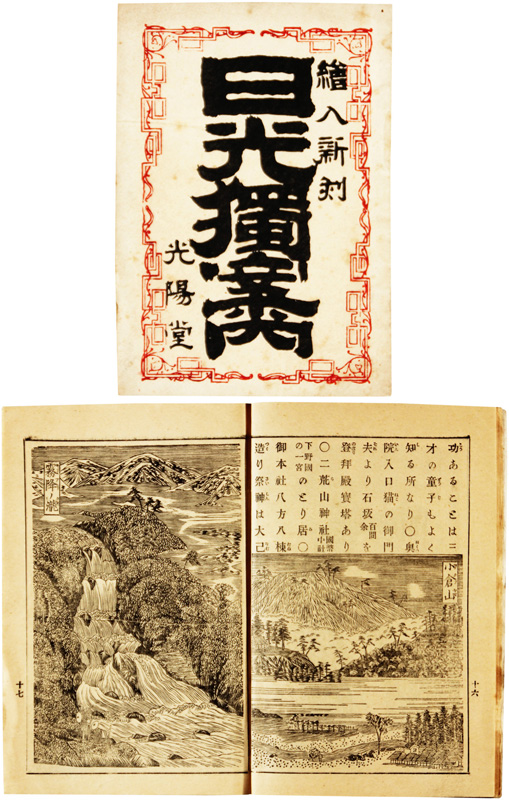 繪入新刻
日光獨案内
光陽堂
功あることは三
才の童子もよく
知る所なり〇奥
院入口猫の御門
夫より石坂百間余を
登拜殿寶塔あり
〇二荒山神社國幣中社
下野國の一宮のとり居〇
御本社八方八棟
造り祭神は大己
小倉山
十六
霧降ノ瀧
十七